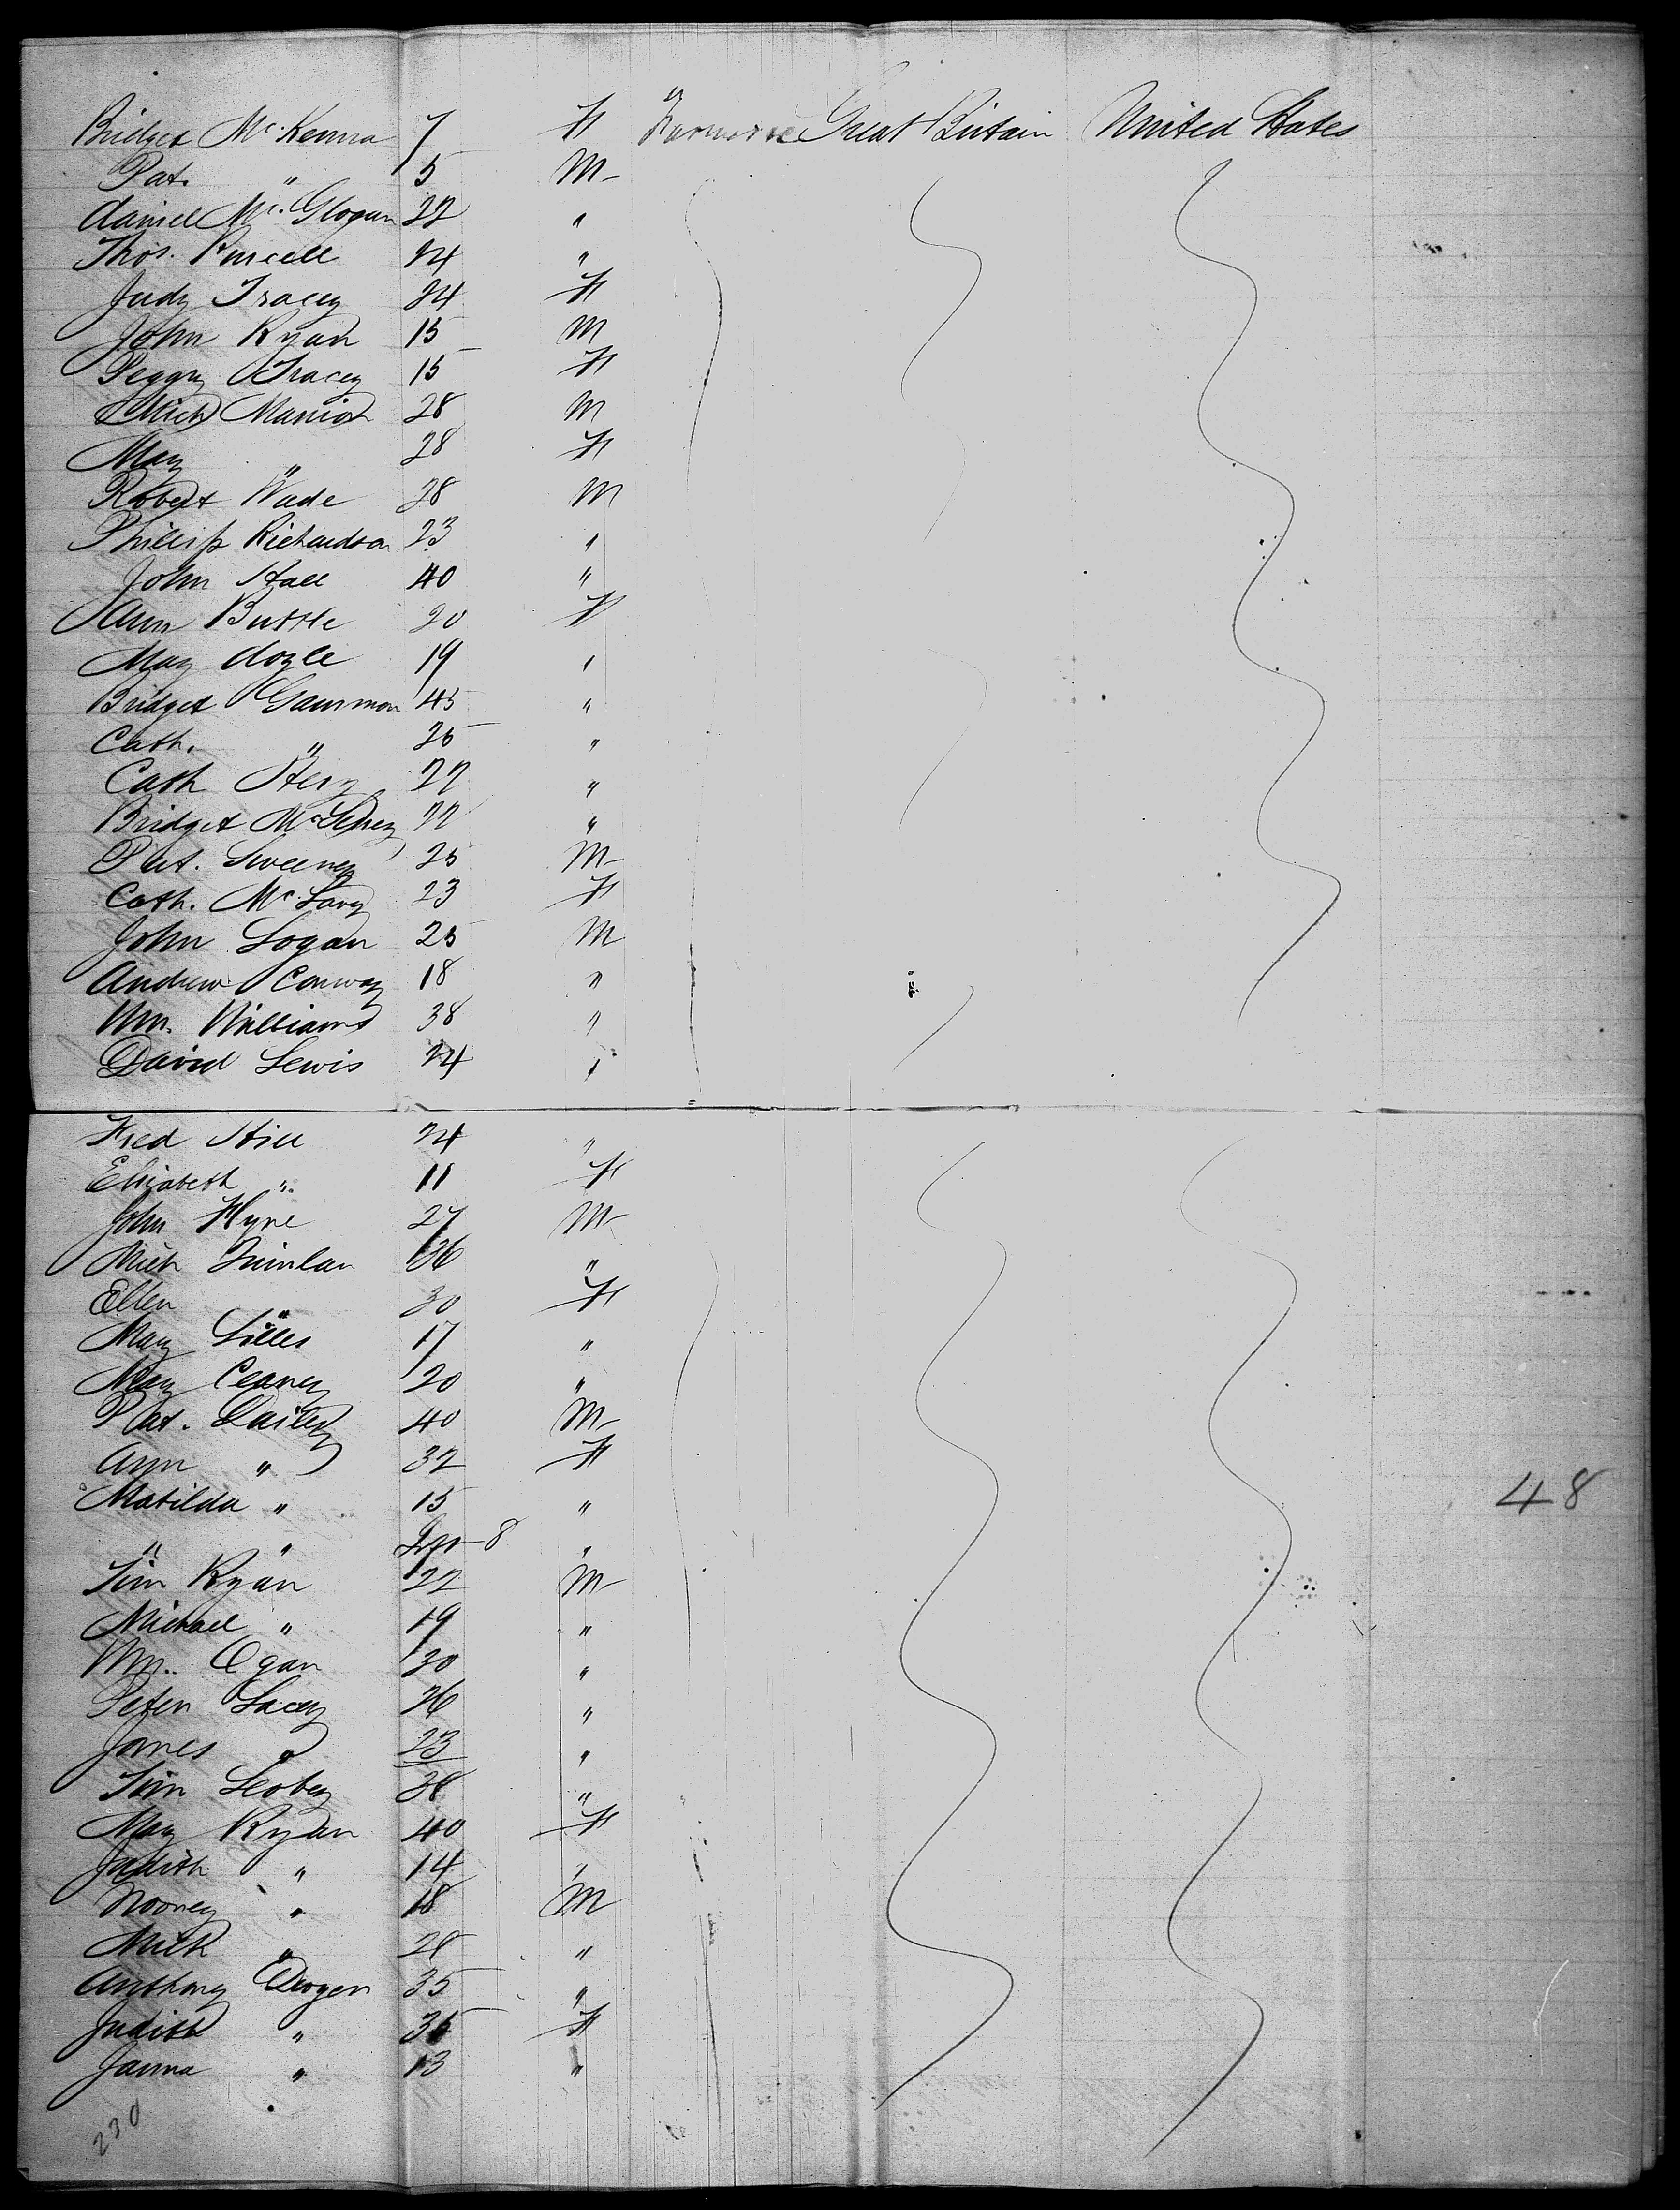 Bridget Mc.Kenna 7 F " Great Britain United States
Pat. " 5 M
daniell Mc.Glogan 22 "
Thos. Purcell 24 "
Judy Tracey 24 F
John Ryan 15 M
Peggy Tracey 15 F
Mich Manion 28 M
May " 28 F
Robert Wade 28 M
Phillip Richardson 23 "
John Hall 40 "
Ann Buttle 20 F
May doyle 19 "
Bridget Gammon 45 "
Cath. " 25 "
Cath 22 "
Bridget 22 "
Pat. Sweeney 25 M
Cath. Mc 23 F
John Logan 25 M
Andrew Conway 18 "
Wm. Williams 38 "
David Lewis 24 "
Fred Hill 24 "
Elizabeth " 11 F
John Hyne 27 M
Mich Quinlan 36 "
Ellen " 30 F
May Lilles 17 "
May Ceaney 20 "
Pat. Dailey 40 M
Ann " 32 F
Matilda " 15 "
" " 8 "
Tim Ryan 22 M
Michael " 19 "
Wm. Ogan 30 "
Peter Lacey 26 "
James " 23 "
Tim 38 "
May Ryan 40 F
Judith " 14 "
Nooney " 18 M
Mich " 28 "
Anthony 35 "
Judith " 35 F
Janna " 13 "
48
230